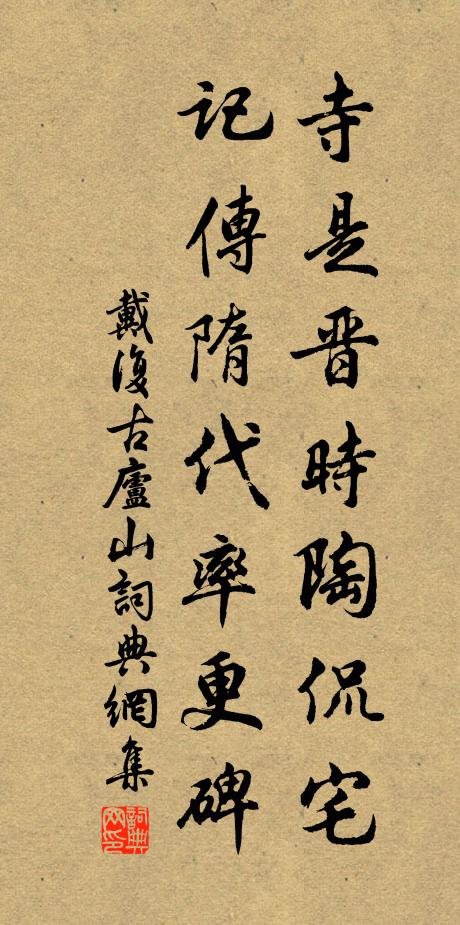 寺是晋時陶侃宅
記傳隋代率更碑
戴復古廬山詞典網集
詞典网印